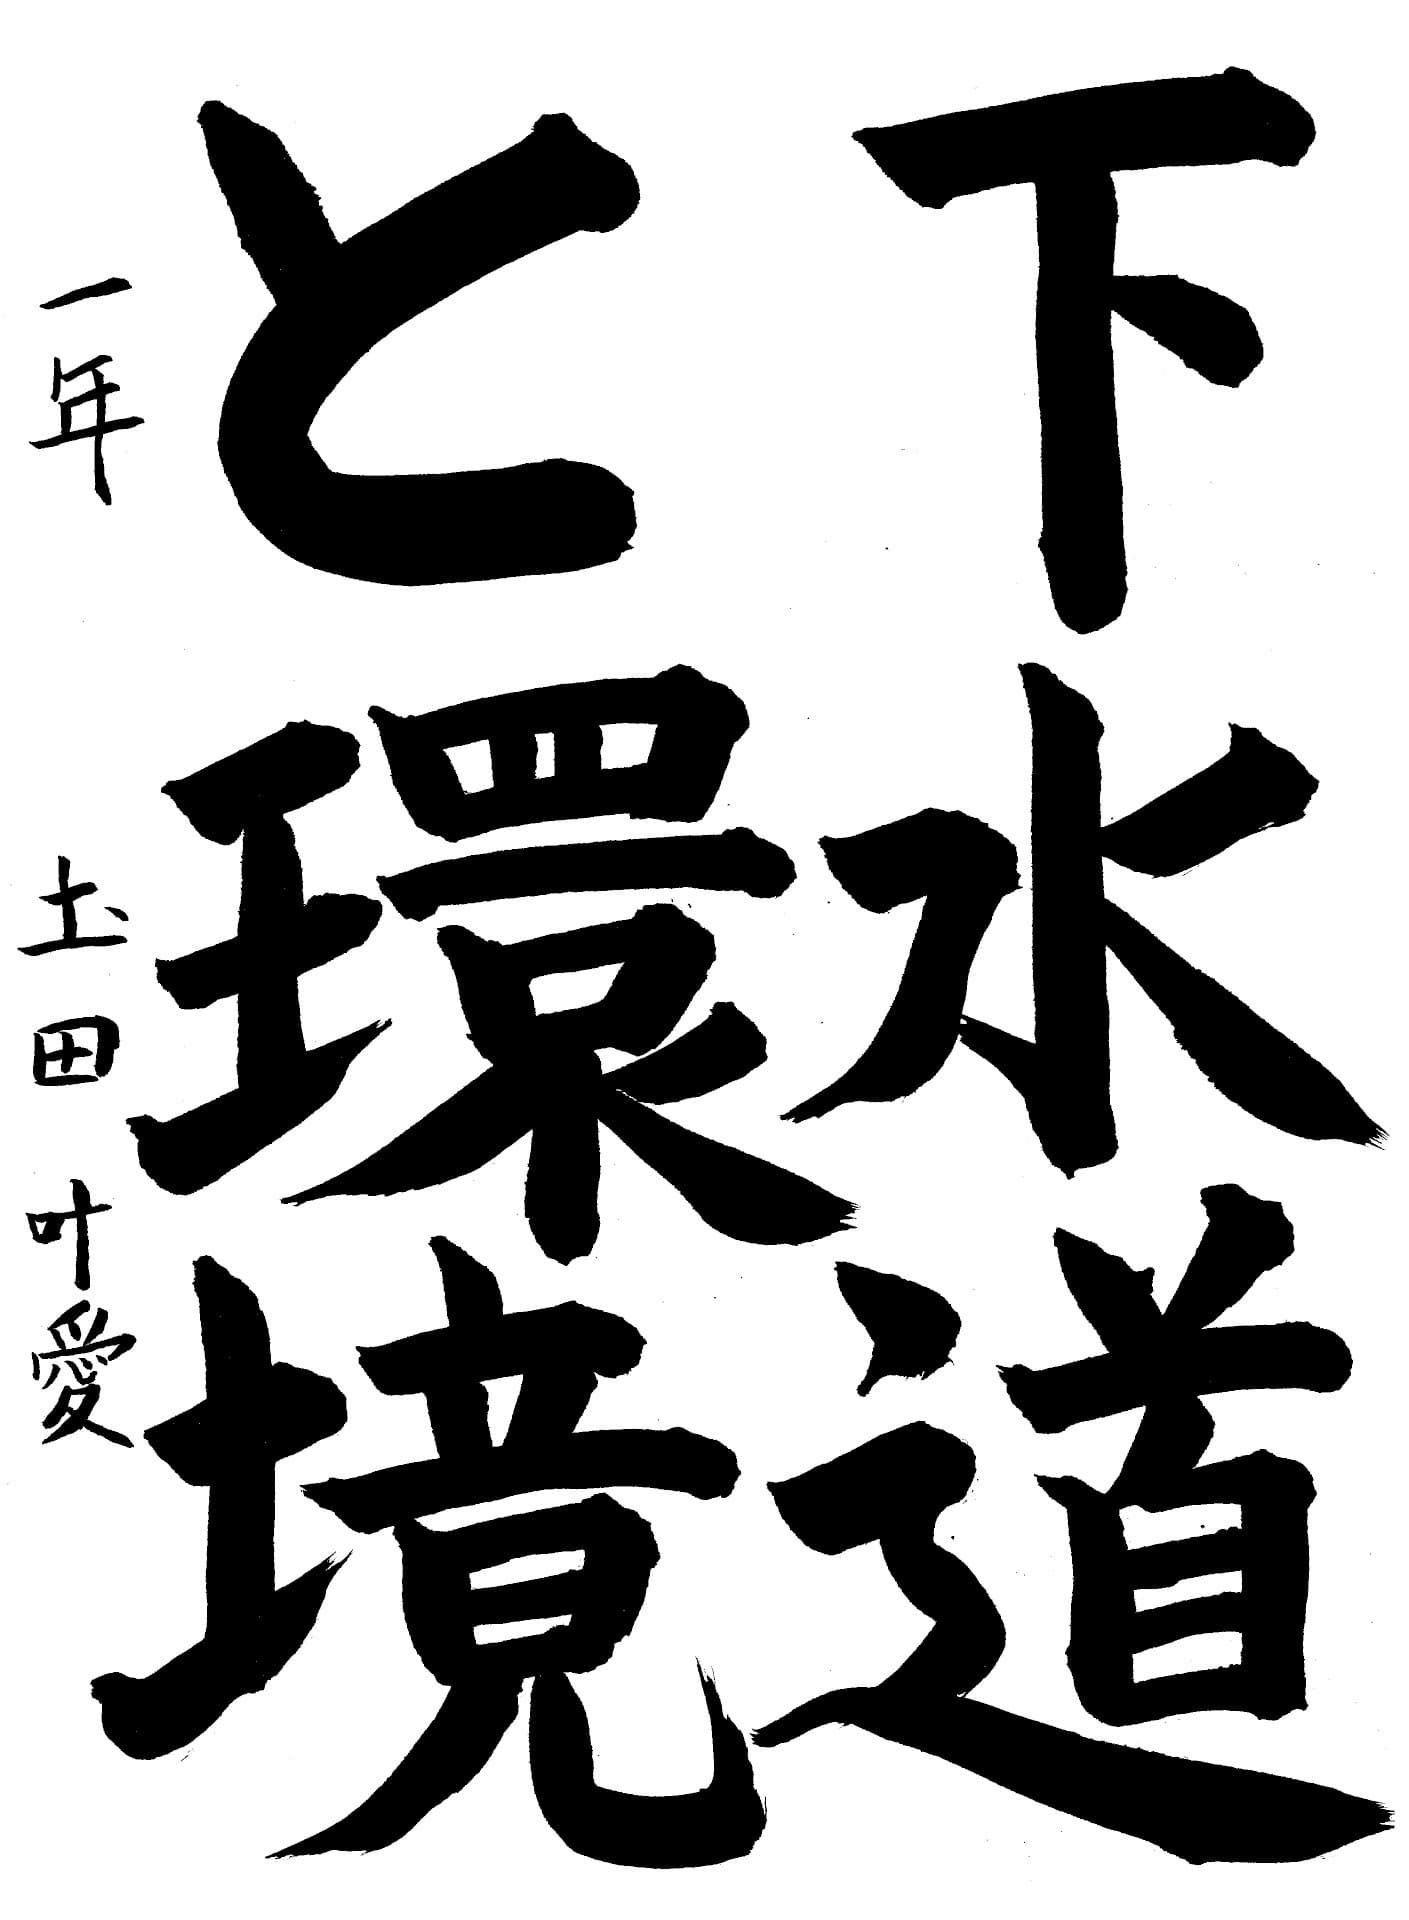 下水道
と環境
一年 圡田叶愛